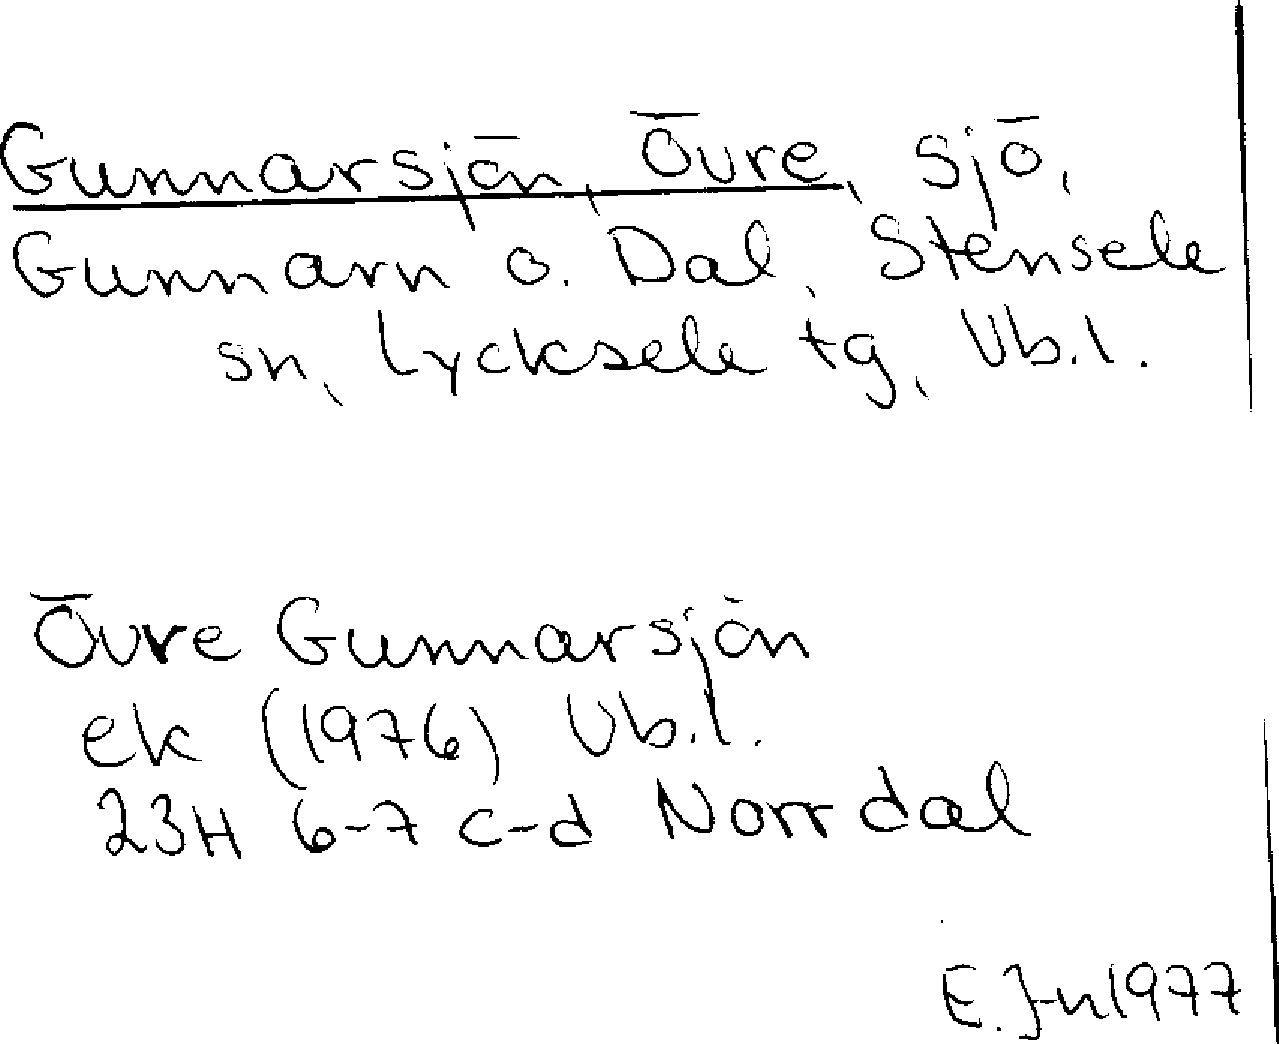 Gunnarsjön, Övre, sjö,
Gunnarn o. Dal, Stensele
sn, Lycksele tg, Vb.l.
Övre Gunnarsjön
ek (1976) Vb.l.
23H 6-7 c-d Norrdal
E. J-n 1977